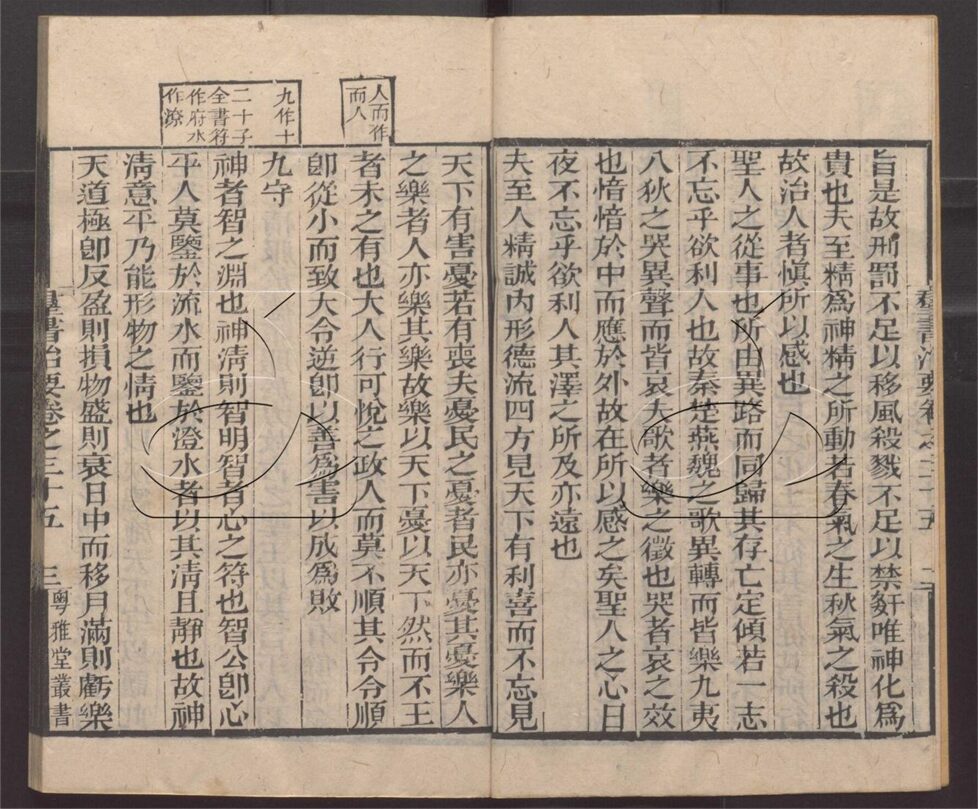 旨是故刑罰不足以移風殺戮不足以禁姧唯神化爲
貴也夫至精爲神精之所動若春氣之生秋氣之殺也
故治人者愼所以感也
聖人之從事也所由異路而同歸其存亡定傾若一志
不忘乎欲利人也故秦楚燕魏之歌異轉而皆樂九夷
八狄之哭異聲而皆哀夫歌者樂之徵也哭者哀之效
也愔愔於中而應於外故在所以感之矣聖人之心日
夜不忘乎欲利人其澤之所及亦遠也
夫至人精誠內形德流四方見天下有利喜而不忘見
羣書治要卷之三十五
人而作
而人
九作十
二十子
全書符
作府水
作潦
天下有害憂若有喪夫憂民之憂者民亦憂其憂樂人
之樂者人亦樂其樂故樂以天下憂以天下然而不王
者未之有也大人行可悅之政人而莫不順其令令順
卽從小而致大令逆卽以善爲害以成爲敗
九守
神者智之淵也神淸則智明智者心之符也智公卽心
平人莫鑒於流水而鑒於澄水者以其淸且靜也故神
淸意平乃能形物之情也
天道極卽反盈則損物盛則衰日中而移月滿則虧樂
羣書治要卷之三十五
三
粵雅堂叢書